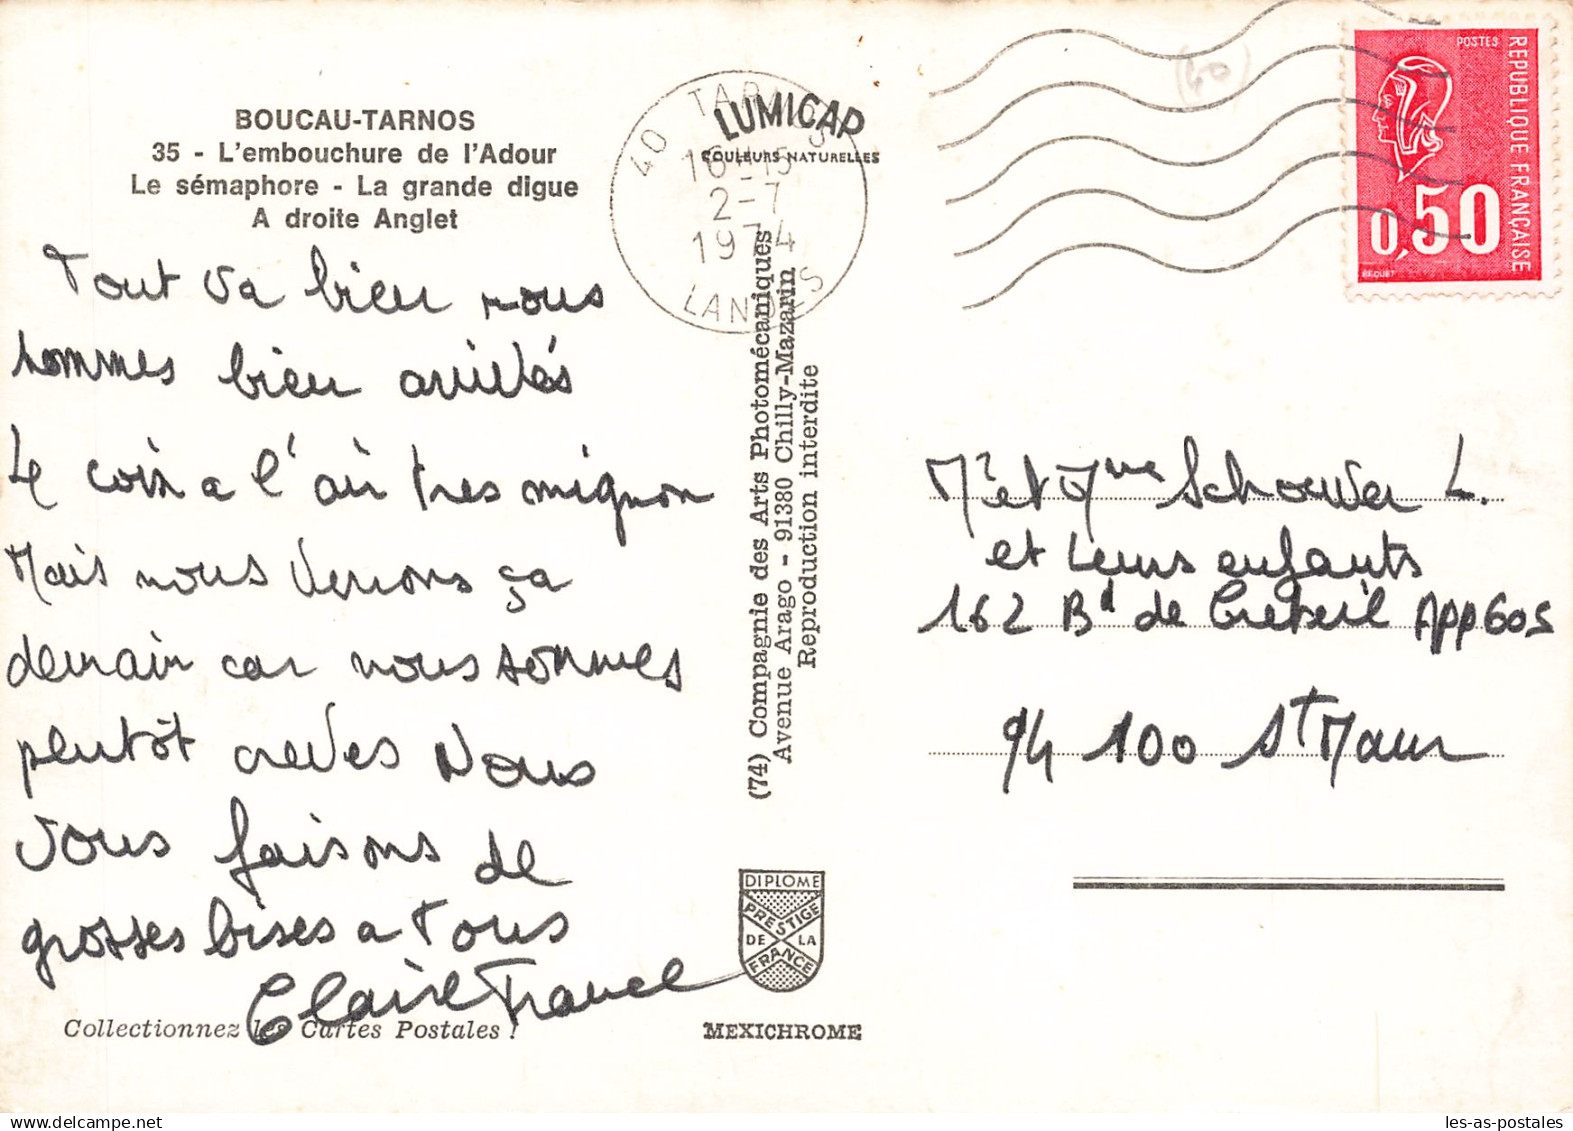 BOUCAU-TARNOS
35 - L'embouchure de l'Adour
Le sémaphore - La grande digue
A droite Anglet
Tout va bien nous
sommes bien arrivés
Le coin a l'air tres mignon
Mais nous verrons ça
demain car nous sommes
plutôt creves Nous
vous faisons de
grosses bises a tous
Claire France
Collectionnez les Cartes Postales !
40 TARNOS
16-15
2-7
1974
LANDES
LUMICAP
COULEURS NATURELLES
(74) Compagnie des Arts Photomécaniques
Avenue Arago - 91380 Chilly-Mazarin
Reproduction interdite
DIPLOME
PRESTIGE
DE LA
FRANCE
MEXICHROME
(60)
POSTES
REPUBLIQUE FRANÇAISE
0,50
BEQUET
Mr et Mme Schouver L.
et leurs enfants
162 Bd de Creteil App 605
94 100 St Maur
les-as-postales.com